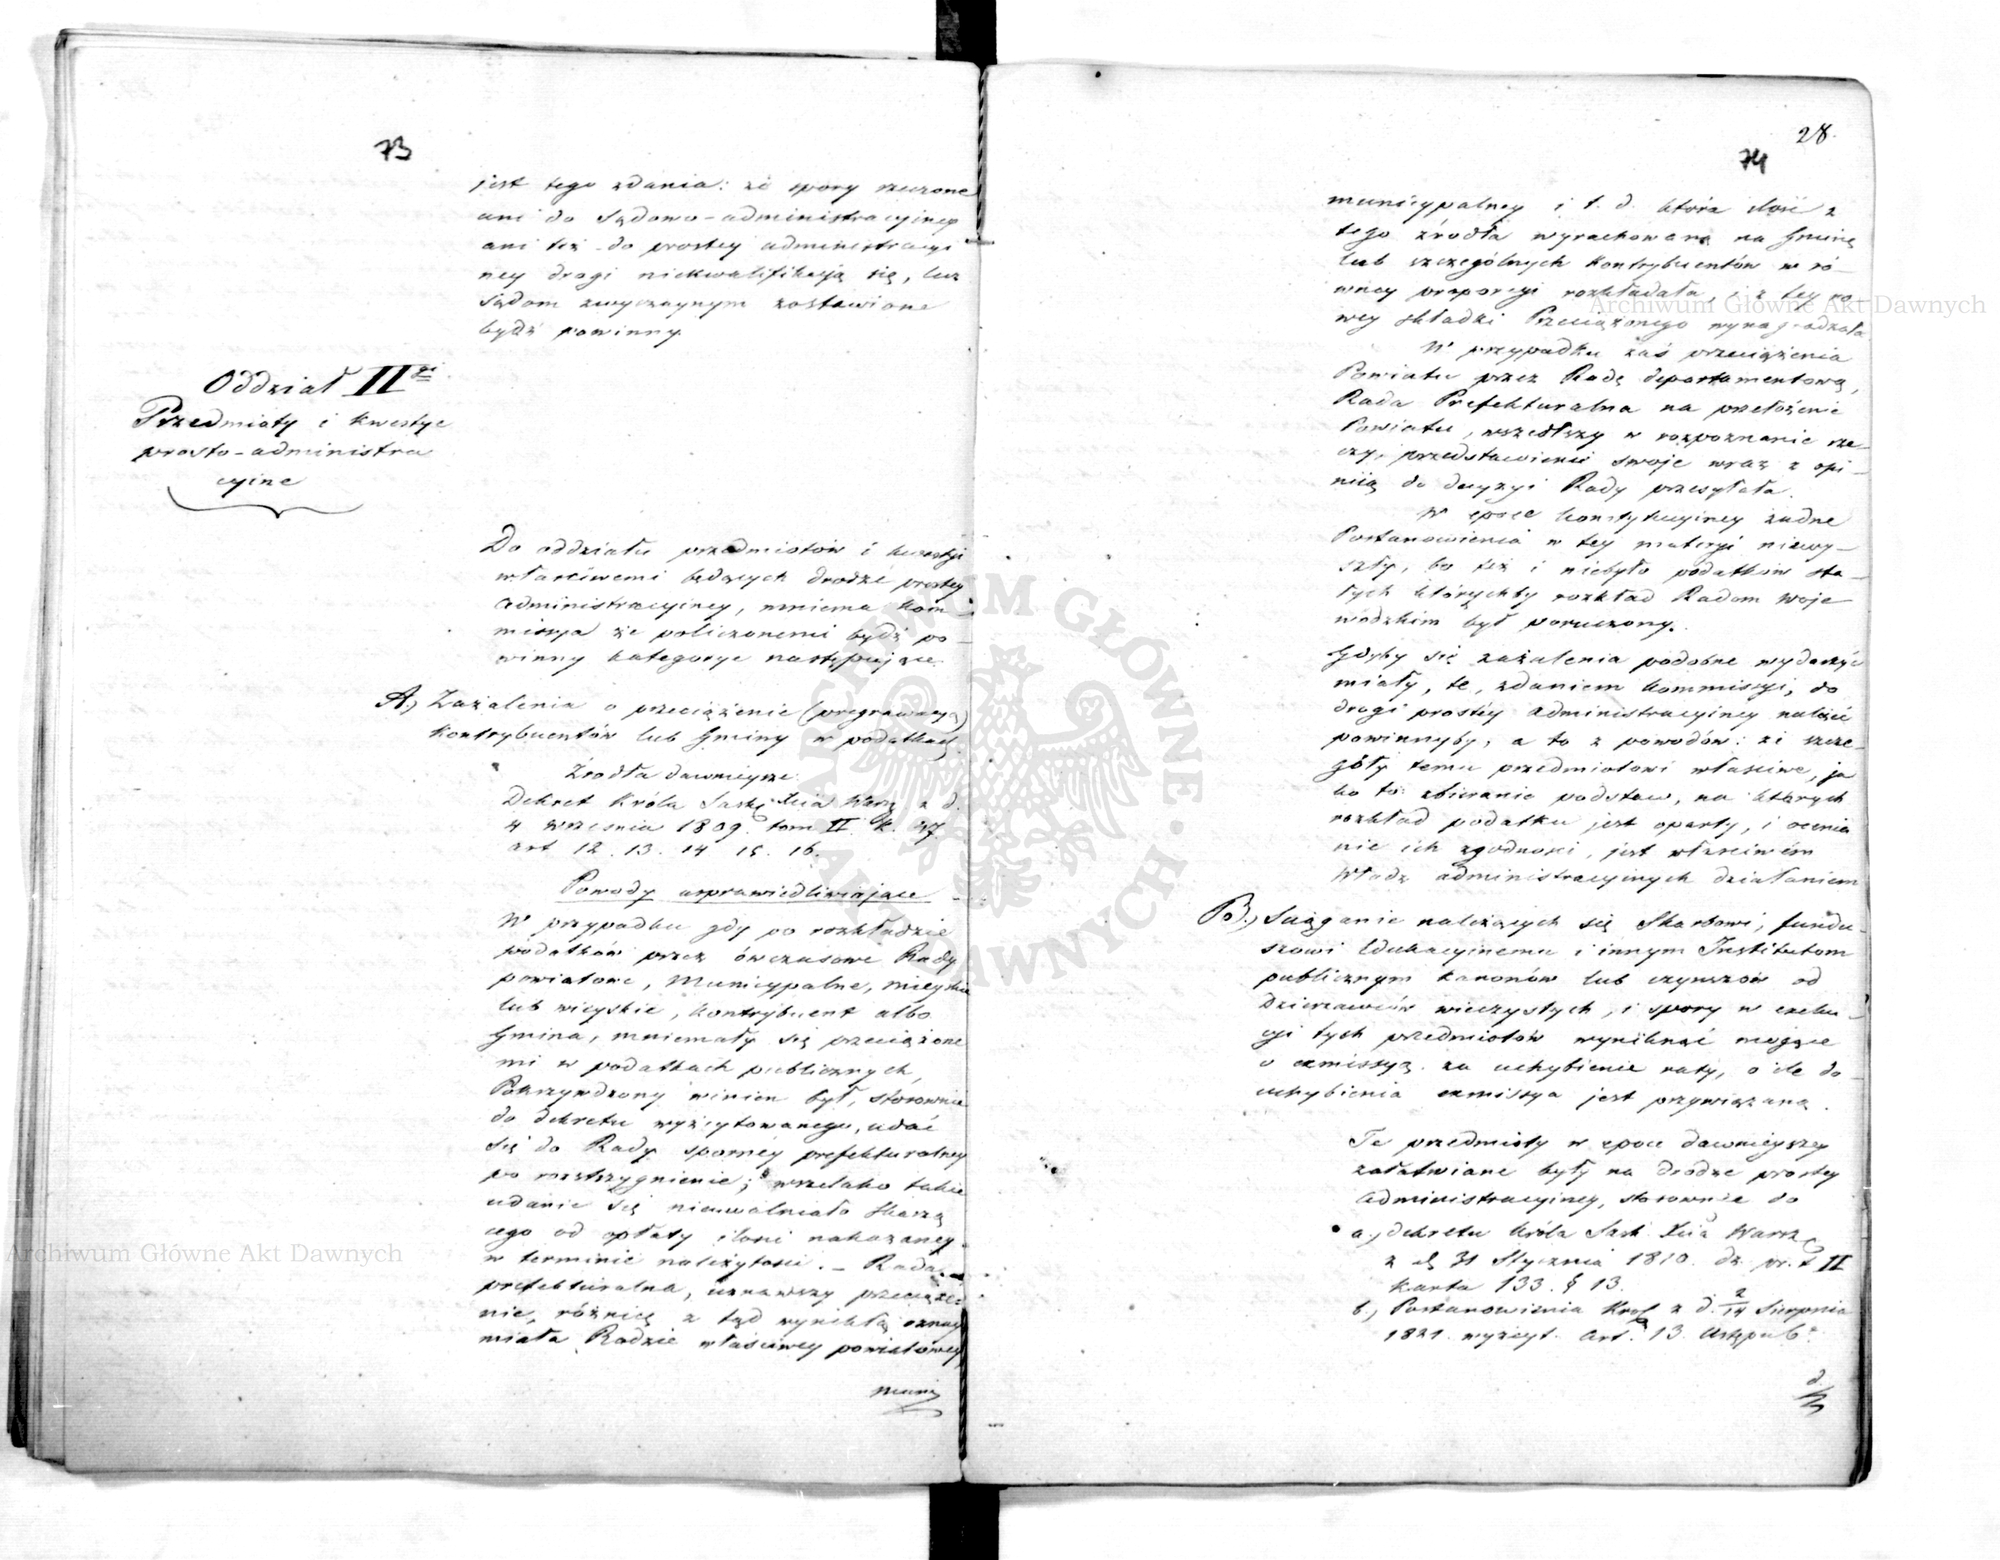 73
jest tego zdania: że spory rzeczone
ani do Sądowo-administracyiney
ani też do prostey administracyi
ney drogi niekwalifikują się, lecz
Sądom zwyczaynym zostawione
bydź powinny.
Oddział IIgi
Przedmioty i kwestye
prosto-administra
cyine
Do oddziału przedmiotów i kwestyi
właściwemi będących drodze prostey
administracyiney, mniema Kom-
missya że policzonemi bydź po-
winny kategorye następujące.
A, Zażalenia o przeciążenie (pregrawacyą)
Kontrybuentów lub Gminy w podatkach.
Źrodła dawnieysze.
Dekret Króla Sask: Xcia Warsz z d.
4 września 1809. tom II. k. 47
art 12. 13. 14 15. 16.
Powody usprawiedliwiające
W przypadku gdy po rozkładzie
podatków przez ówczasowe Rady
powiatowe, Municypalne, mieyskie
lub wieyskie, kontrybuent albo
Gmina, mniemały się przeciążone
mi w podatkach publicznych,
Pokrzywdzony winien był, stosownie
do dekretu wyżcytowanego, udać
się do Rady sporney prefekturalney
po rozstrzygnienie; wszelako takie
udanie się nieuwalniało skarżą
cego od opłaty ilości nakazaney
w terminie należytości. – Rada
prefekturalna, uznawszy przeciąże-
nie, różnicę z tąd wynikłą oznay
miała Radzie właściwey powiatowey,
muni
28.
74
municypalney i t. d. która ilość z
tego źrodła wyrachowaną na Gminę
lub szczególnych kontrybuentów w ró-
wney proporcyi rozkładała, i z tey no
wey składki Przeciążonego wynagradzała
W przypadku zaś przeciążenia
Powiatu przez Radę departamentową,
Rada Prefekturalna na przełożenie
Powiatu, wszedłszy w rozpoznanie rze-
czy, przedstawienie swoje wraz z opi-
niią do decyzyi Rady przesyłała.
W epoce konstytucyiney żadne
Postanowienia w tey materyi niewy-
szły, bo też i niebyło podatków sta-
łych którychby rozkład Radom Woje
wodzkim był poruczony.
Gdyby się zażalenia podobne wydarzyć
miały, te, zdaniem Kommissyi, do
drogi prostey administracyiney należeć
powinnyby, a to z powodów: że szcze-
góły temu przedmiotowi właściwe, ja
ko to: zbieranie podstaw, na których
rozkład podatku jest oparty, i ocenia
nie ich zgodności, jest właściwém
Władz administracyinych działaniem
B., Sciąganie należących się Skarbowi, fundu-
szowi Edukacyinemu i innym Institutom
publicznym kanonów lub czynszów od
Dzierżawców wieczystych, i spory w exeku-
cyi tych przedmiotów wyniknąć mogące
o exmissyą za uchybienie raty, o ile do
uchybienia exmissya jest przywiązaną.
Te przedmioty w epoce dawnieyszey
załatwiane były na drodze prostey
administracyiney, stosownie do
a., dekretu Króla Sask. Xcia Warsz
z d. 31 Stycznia 1810. dz. pr. t II
karta 133. § 13.
b., Postanowienia Król z d. 2/14 Sierpnia
1821. wyżcyt. art. 13. Ustępu b.
d.
Archiwum Główne Akt Dawnych
Archiwum Główne Akt Dawnych
ARCHIWUM GŁÓWNE AKT DAWNYCH